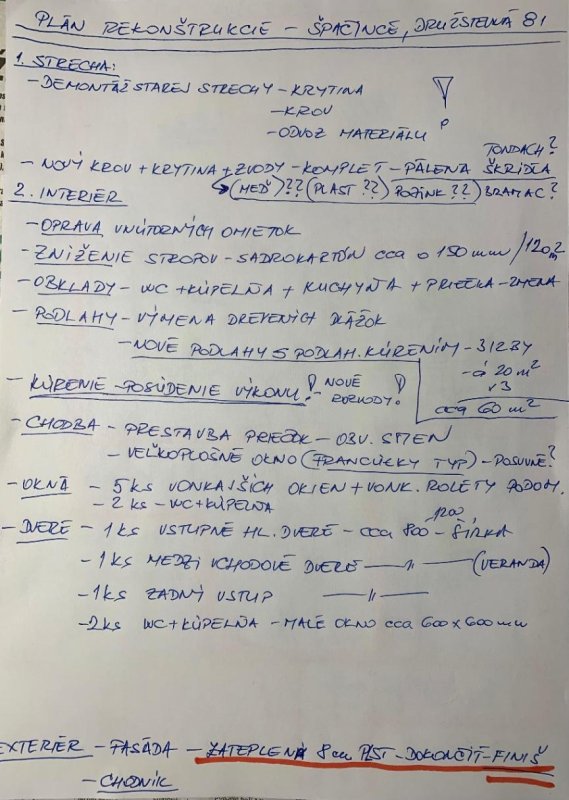 PLÁN REKONŠTRUKCIE - ŠPAČINCE, DRUŽSTEVNÁ 81
1. STRECHA:
- DEMONTÁŽ STAREJ STRECHY - KRYTINA
- KROV
- ODVOZ MATERIÁLU
TONDACH?
- NOVÝ KROV + KRYTINA + ZVODY - KOMPLET - PÁLENÁ ŠKRIDLA
(MEĎ)?? (PLAST ??) POZINK ??) BRAMAC?
2. INTERIÉR
- OPRAVA VNÚTORNÝCH OMIETOK
- ZNÍŽENIE STROPOV - SADROKARTÓN cca o 150 mm / 120 m2
- OBKLADY - WC + KÚPEĽŇA + KUCHYŇA + PRIEČKA - ZMENA
- PODLAHY - VÝMENA DREVENÝCH
- NOVÉ PODLAHY S PODLAH. KÚRENÍM - 3 IZBY
- á 20 m2
x 3
cca 60 m2
- KÚRENIE - POSÚDENIE VÝKONU! - NOVÉ ROZVODY!
- CHODBA - PRESTAVBA PRIEČOK - OBV. STIEN
- VEĽKOPLOŠNÉ OKNO (FRANCÚZKY TYP) - POSUVNÉ?
- OKNÁ - 5 ks VONKAJŠÍCH OKIEN + VONK. ROLETY PODOM.
- 2 ks - WC + KÚPEĽŇA
- DVERE - 1 ks VSTUPNÉ HL. DVERE - cca 800 - 1200 ŠÍRKA
- 1 ks MEDZI VCHODOVÉ DVERE —//— (VERANDA)
- 1 ks ZADNÝ VSTUP —//—
- 2 ks WC + KÚPEĽŇA - MALÉ OKNO cca 600 x 600 mm
EXTERIÉR - FASÁDA - ZATEPLENÁ 8 cm - DOKONČIŤ - FINIŠ
- CHODNÍK